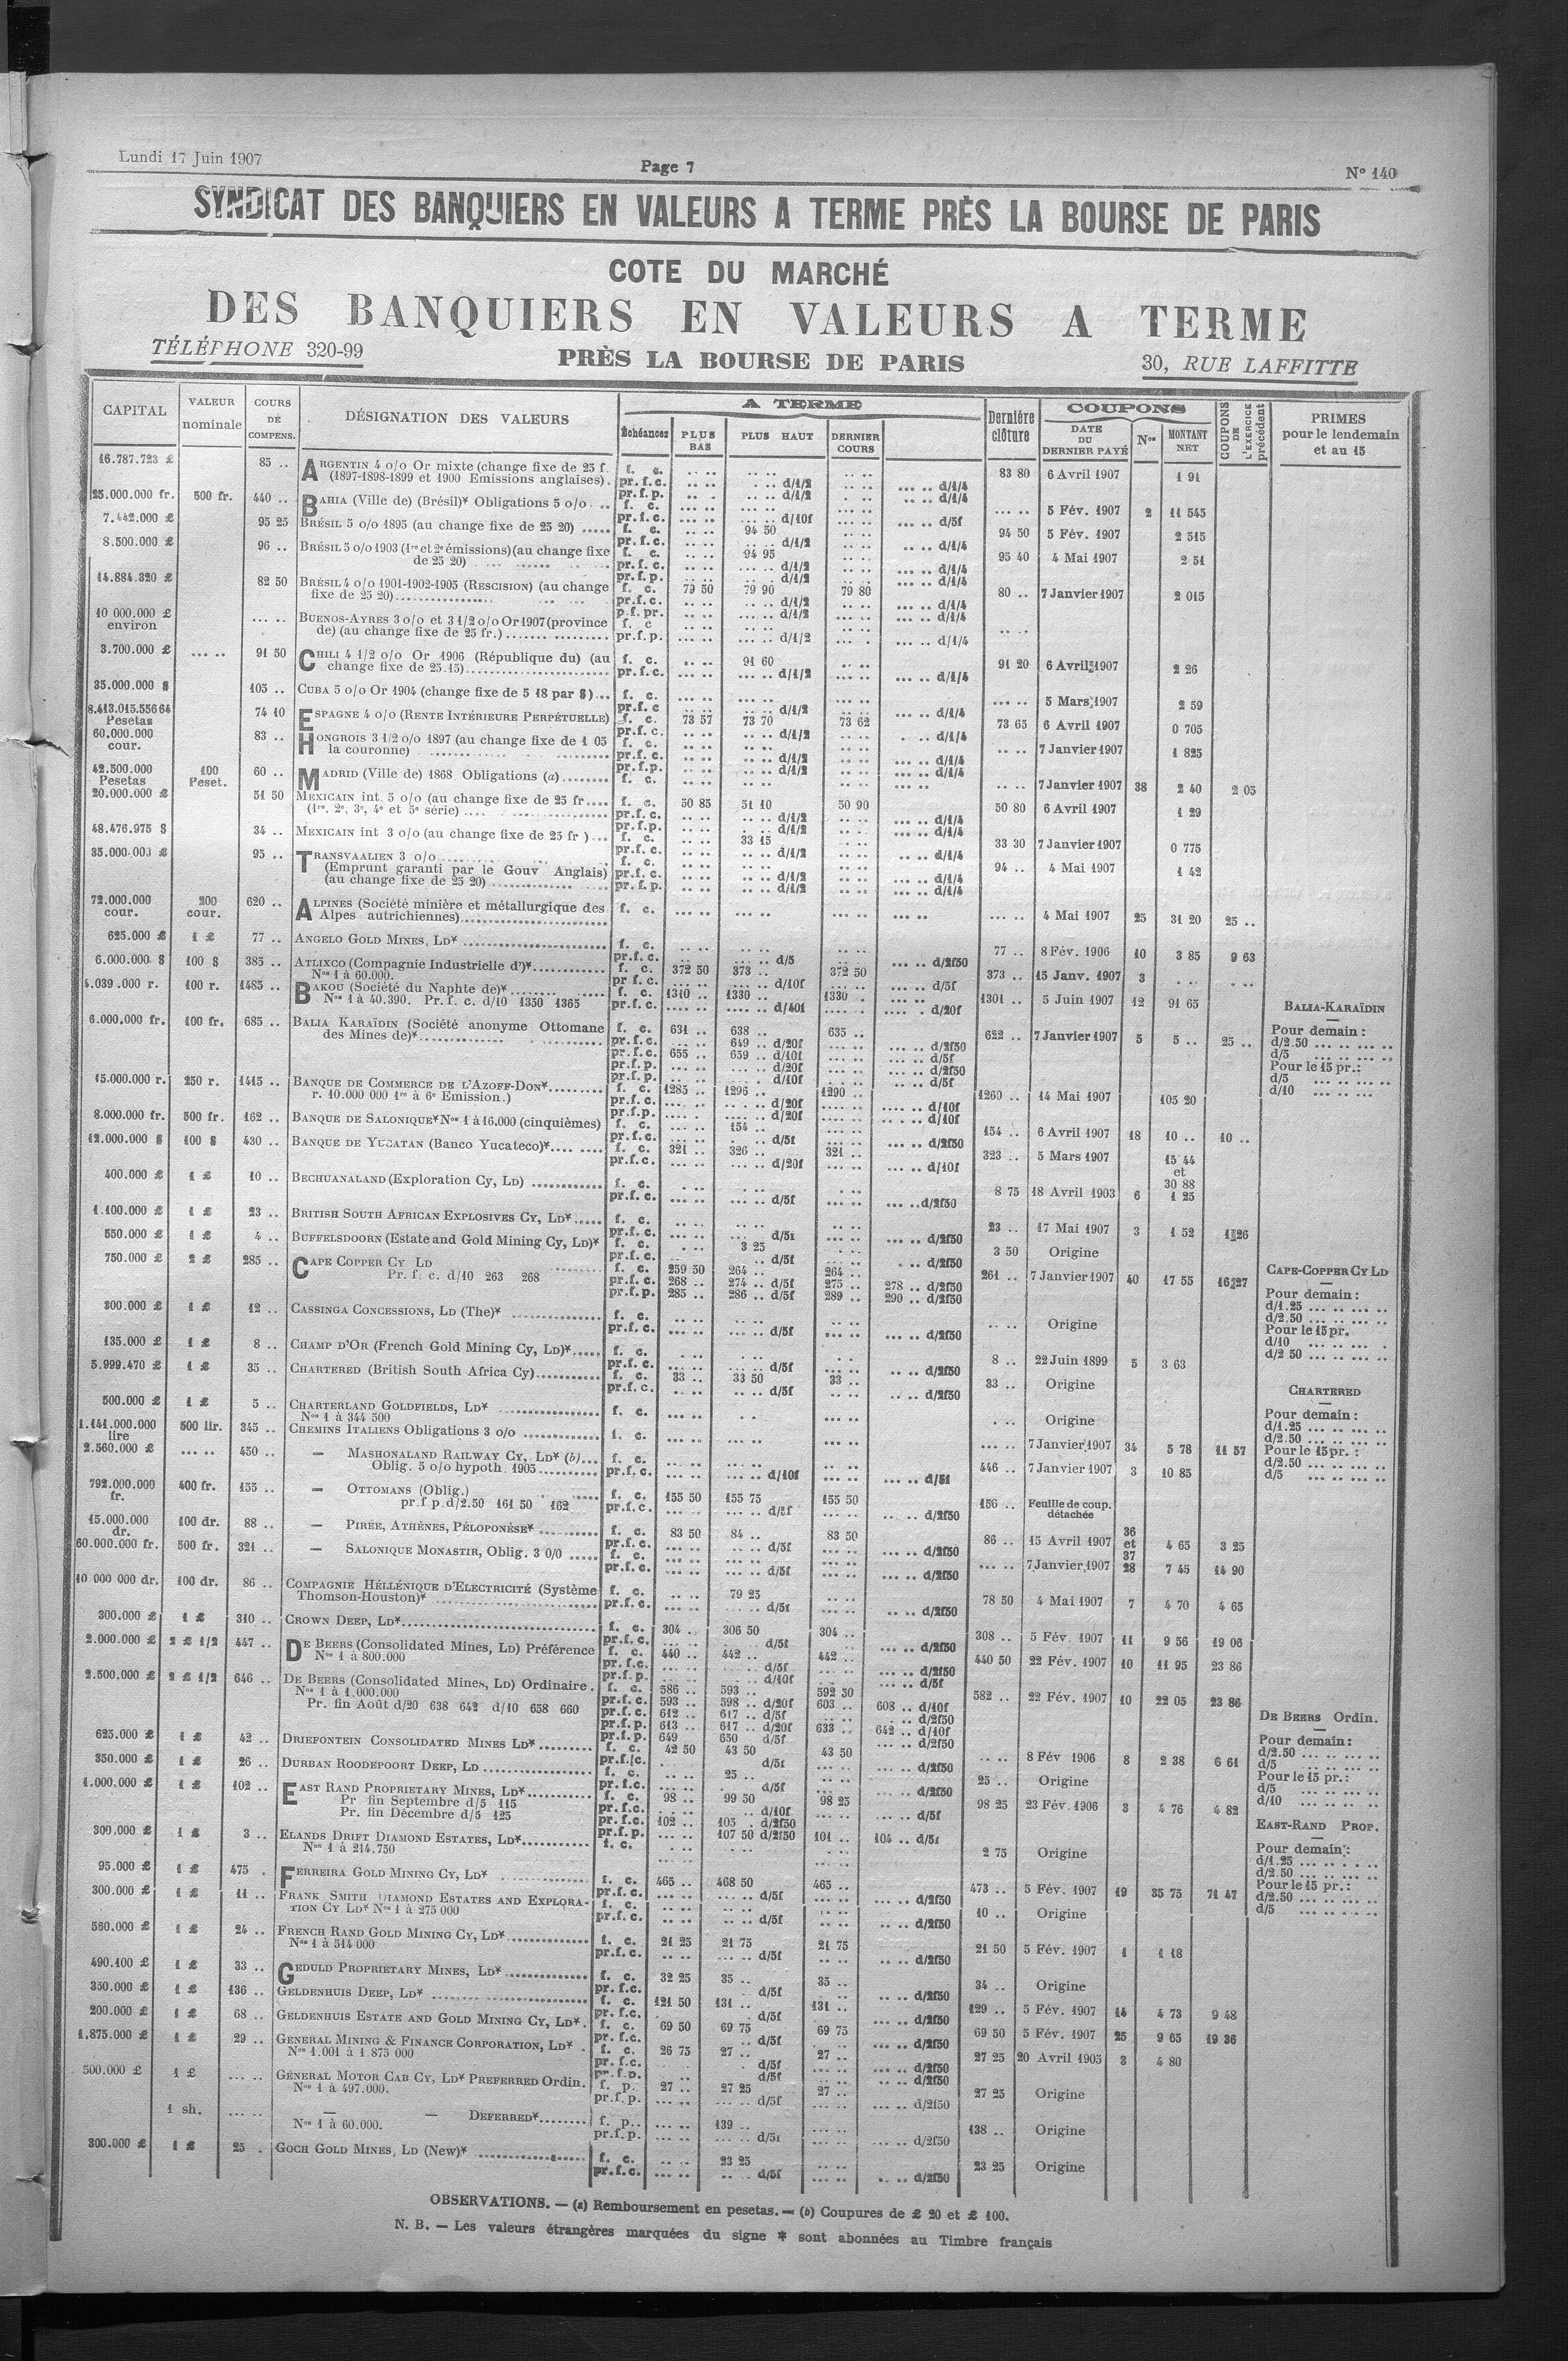 Lundi 17 Juin 1907
Page 7
N° 140
SYNDICAT DES BANQUIERS EN VALEURS A TERME PRÈS LA BOURSE DE PARIS
COTE DU MARCHÉ
DES BANQUIERS EN VALEURS A TERME
TÉLÉPHONE 320-99
PRÈS LA BOURSE DE PARIS
30, RUE LAFFITTE
CAPITAL VALEUR nominale COURS DE COMPENS. DÉSIGNATION DES VALEURS A TERME Échéances PLUS BAS PLUS HAUT DERNIER COURS Dernière clôture COUPONS DATE DU DERNIER PAYÉ Nos MONTANT NET COUPONS DE L'EXERCICE précédent PRIMES pour le lendemain et au 15
16.787.723 £ 85 .. ARGENTIN 4 o/o Or mixte (change fixe de 25 f. f. c. 83 80 6 Avril 1907 1 91
(1897-1898-1899 et 1900 Emissions anglaises). pr.f.c. d/1/2 d/1/4
pr.f.p. d/1/2 d/1/4
25.000.000 fr. 500 fr. 440 .. BAHIA (Ville de) (Brésil)* Obligations 5 o/o f. c. 5 Fév. 1907 2 11 545
pr.f.c. d/10f d/5f
7.442.000 £ 95 25 BRÉSIL 5 o/o 1895 (au change fixe de 25 20) f. c. 94 50 94 50 5 Fév. 1907 2 515
pr.f.c. d/1/2 d/1/4
8.500.000 £ 96 .. BRÉSIL 5 o/o 1903 (1re et 2e émissions) (au change fixe f. c. 94 95 95 40 4 Mai 1907 2 51
de 25 20) pr.f.c. d/1/2 d/1/4
pr.f.p. d/1/2 d/1/4
14.884.320 £ 82 50 BRÉSIL 4 o/o 1901-1902-1905 (RESCISION) (au change f. c. 79 50 79 90 79 80 80 .. 7 Janvier 1907 2 015
fixe de 25 20) pr.f.c. d/1/2 d/1/4
p.f.pr. d/1/2 d/1/4
10 000.000 £ environ BUENOS-AYRES 3 o/o et 3 1/2 o/o Or 1907 (province f. c
de) (au change fixe de 25 fr.) pr.f.p. d/1/2 d/1/4
3.700.000 £ 91 50 CHILI 4 1/2 o/o Or 1906 (République du) (au f. c. 91 60 91 20 6 Avril 1907 2 26
change fixe de 25.15) pr.f.c. d/1/2 d/1/4
35.000.000 $ 105 .. CUBA 5 o/o Or 1904 (change fixe de 5 18 par $) f. c. 5 Mars 1907 2 59
pr.f.c d/1/2 d/1/4
8.413.015.556 64 Pesetas 74 10 ESPAGNE 4 o/o (RENTE INTÉRIEURE PERPÉTUELLE) f. c. 73 57 73 70 73 62 73 65 6 Avril 1907 0 705
pr.f.c. d/1/2 d/1/4
60.000.000 cour. 83 .. HONGROIS 3 1/2 o/o 1897 (au change fixe de 1 05 f. c. 7 Janvier 1907 1 825
la couronne) pr.f.c. d/1/2 d/1/4
pr.f.p. d/1/2 d/1/4
42.500.000 Pesetas 100 Peset. 60 .. MADRID (Ville de) 1868 Obligations (a) f. c. 7 Janvier 1907 38 2 40 2 05
20.000.000 £ 51 50 MEXICAIN int. 5 o/o (au change fixe de 25 fr f. c. 50 85 51 10 50 90 50 80 6 Avril 1907 1 29
(1re, 2e, 3e, 4e et 5e série) pr.f.c. d/1/2 d/1/4
pr.f.p. d/1/2 d/1/4
48.476.975 $ 34 .. MEXICAIN int 3 o/o (au change fixe de 25 fr ) f. c. 33 15 33 30 7 Janvier 1907 0 775
pr.f.c. d/1/2 d/1/4
35.000.000 £ 95 .. TRANSVAALIEN 3 o/o f. c. 94 .. 4 Mai 1907 1 42
(Emprunt garanti par le Gouv Anglais) pr.f.c. d/1/2 d/1/4
(au change fixe de 25 20) pr.f.p. d/1/2 d/1/4
72.000.000 cour. 200 cour. 620 .. ALPINES (Société minière et métallurgique des f. c. 4 Mai 1907 25 31 20 25 ..
Alpes autrichiennes)
625.000 £ 1 £ 77 .. ANGELO GOLD MINES, LD* f. c. 77 .. 8 Fév. 1906 10 3 85 9 63
pr.f.c. d/5 d/2f50
6.000.000 $ 100 $ 385 .. ATLIXCO (Compagnie Industrielle d')* f. c. 372 50 373 .. 372 50 373 .. 15 Janv. 1907 3
Nos 1 à 60.000. pr f.c. d/10f d/5f
4.039.000 r. 100 r. 1485 .. BAKOU (Société du Naphte de)* f. c. 1310 .. 1330 .. 1330 . 1301 .. 5 Juin 1907 12 91 65
Nos 1 à 40.390. Pr. f. c. d/10 1350 1365 pr.f.c. d/40f d/20f
6.000.000 fr. 100 fr. 685 .. BALIA KARAÏDIN (Société anonyme Ottomane f. c. 631 .. 638 .. 635 .. 622 .. 7 Janvier 1907 5 5 .. 25 ..
des Mines de)* pr.f.c. 649 .. d/20f d/2f50
pr.f.c. 655 .. 659 .. d/10f d/5f
pr.f.p. d/20f d/2f50
pr.f.p. d/10f d/5f
BALIA-KARAÏDIN
Pour demain :
d/2.50
d/5
Pour le 15 pr.:
d/5
d/10
15.000.000 r. 250 r. 1415 .. BANQUE DE COMMERCE DE L'AZOFF-DON* f. c. 1285 .. 1296 .. 1290 .. 1260 .. 14 Mai 1907 105 20
r. 10.000 000 1re à 6e Emission.) pr.f.c. d/20f d/10f
pr.f.p. d/20f d/10f
8.000.000 fr. 500 fr. 162 .. BANQUE DE SALONIQUE* Nos 1 à 16.000 (cinquièmes) f. c. 154 .. 154 .. 6 Avril 1907 18 10 .. 10 ..
pr.f.c. d/5f d/2f50
12.000.000 $ 100 $ 430 .. BANQUE DE YUCATAN (Banco Yucateco)* f. c. 321 .. 326 .. 321 .. 323 .. 5 Mars 1907 15 44 et 30 88
pr.f.c. d/20f d/10f
400.000 £ 1 £ 10 .. BECHUANALAND (Exploration Cy, LD) f. c. 8 75 18 Avril 1903 6 1 25
pr.f.c. d/5f d/2f50
1.100.000 £ 1 £ 23 .. BRITISH SOUTH AFRICAN EXPLOSIVES CY, LD* f. c. 23 .. 17 Mai 1907 3 1 52 1 26
pr.f.c. d/5f d/2f50
550.000 £ 1 £ 4 .. BUFFELSDOORN (Estate and Gold Mining Cy, LD)* f. c. 3 25 3 50 Origine
pr.f.c. d/5f d/2f50
750.000 £ 2 £ 285 .. CAPE COPPER CY LD f. c. 259 50 264 .. 264 .. 261 .. 7 Janvier 1907 40 17 55 16 27
Pr. f. c. d/10 263 268 pr.f.c. 268 .. 274 .. d/5f 275 .. 278 .. d/2f50
pr.f.p. 285 .. 286 .. d/5f 289 .. 290 .. d/2f50
CAPE-COPPER CY LD
Pour demain :
d/1.25
d/2.50
Pour le 15 pr.
d/10
d/2 50
300.000 £ 1 £ 12 .. CASSINGA CONCESSIONS, LD (The)* f. c. Origine
pr.f.c. d/5f d/2f50
135.000 £ 1 £ 8 .. CHAMP D'OR (French Gold Mining Cy, LD)* f. c. 8 .. 22 Juin 1899 5 3 63
pr.f.c. d/5f d/2f50
5.999.470 £ 1 £ 35 .. CHARTERED (British South Africa Cy) f. c. 33 .. 33 50 33 .. 33 .. Origine
pr.f.c. d/5f d/2f50
CHARTERED
Pour demain :
d/1.25
d/2.50
Pour le 15 pr. :
d/2.50
d/5
500.000 £ 1 £ 5 .. CHARTERLAND GOLDFIELDS, LD* f. c. Origine
Nos 1 à 344 500
1.141.000.000 lire 500 lir. 345 .. CHEMINS ITALIENS Obligations 3 o/o f. c. 7 Janvier 1907 34 5 78 11 57
2.560.000 £ 450 .. — MASHONALAND RAILWAY CY, LD* (b) f. c. 446 .. 7 Janvier 1907 3 10 85
Oblig. 5 o/o hypoth. 1905 pr.f.c. d/10f d/5f
792.000.000 fr. 400 fr. 155 .. — OTTOMANS (Oblig.) f. c. 155 50 155 75 155 50 156 .. Feuille de coup. détachée
pr.f p.d/2.50 161 50 162 pr.f.c. d/5f d/2f50
15.000.000 dr. 100 dr. 88 .. — PIRÉE, ATHÈNES, PÉLOPONÈSE* f. c. 83 50 84 .. 83 50 86 .. 15 Avril 1907 36 et 37 4 65 3 25
pr.f.c. d/5f d/2f50
60.000.000 fr. 500 fr. 321 .. — SALONIQUE MONASTIR, Oblig. 3 0/0 f. c. 7 Janvier 1907 28 7 45 14 90
pr.f.c. d/5f d/2f50
10 000 000 dr. 100 dr. 86 .. COMPAGNIE HÉLLÉNIQUE D'ELECTRICITÉ (Système f. c. 79 25 78 50 4 Mai 1907 7 4 70 4 65
Thomson-Houston)* pr.f.c. d/5f d/2f50
300.000 £ 1 £ 310 .. CROWN DEEP, LD* f. c. 304 .. 306 50 304 .. 308 .. 5 Fév. 1907 11 9 56 19 06
pr.f.c. d/5f d/2f50
2.000.000 £ 2 £ 1/2 447 .. DE BEERS (Consolidated Mines, LD) Préférence f. c. 440 .. 442 .. 442 .. 440 50 22 Fév. 1907 10 11 95 23 86
Nos 1 à 800.000 pr.f.c. d/5f d/2f50
pr.f.p. d/10f d/5f
2.500.000 £ 2 £ 1/2 646 .. DE BEERS (Consolidated Mines, LD) Ordinaire. f. c. 586 .. 593 .. 592 50 582 .. 22 Fév. 1907 10 22 05 23 86
Nos 1 à 1.000.000 pr.f.c. 593 .. 598 .. d/20f 603 .. 608 .. d/10f
Pr. fin Août d/20 638 642 d/10 658 660 pr.f.c. 612 .. 617 .. d/5f d/2f50
pr.f.p. 613 .. 617 .. d/20f 633 .. 642 .. d/10f
pr.f.p. 649 650 d/5f d/2f50
DE BEERS Ordin.
Pour demain:
d/2.50
d/5
Pour le 15 pr.:
d/5
d/10
625.000 £ 1 £ 42 .. DRIEFONTEIN CONSOLIDATED MINES LD* f. c. 42 50 43 50 43 50 8 Fév 1906 8 2 38 6 61
pr.f.c. d/5f d/2f50
350.000 £ 1 £ 26 .. DURBAN ROODEPOORT DEEP, LD f. c. 25 .. 25 .. Origine
pr.f.c. d/5f d/2f50
1.000.000 £ 1 £ 102 .. EAST RAND PROPRIETARY MINES, LD* f. c. 98 .. 99 50 98 25 98 25 23 Fév. 1906 3 4 76 4 82
Pr fin Septembre d/5 115 pr.f.c. d/10f d/5f
Pr. fin Décembre d/5 125 pr.f.c. 102 .. 105 . d/2f50
pr.f.p. 107 50 d/2f50 101 .. 104 .. d/5f
EAST-RAND PROP.
Pour demain :
d/1.25
d/2.50
Pour le 15 pr.:
d/2.50
d/5
300.000 £ 1 £ 3 .. ELANDS DRIFT DIAMOND ESTATES, LD* f. c. 2 75 Origine
Nos 1 à 214.750
95.000 £ 1 £ 475 . FERREIRA GOLD MINING CY, LD* f. c. 465 .. 468 50 465 .. 473 .. 5 Fév. 1907 19 35 75 71 47
pr.f.c. d/5f d/2f50
300.000 £ 1 £ 11 .. FRANK SMITH DIAMOND ESTATES AND EXPLORA- f. c. 10 .. Origine
TION CY LD* Nos 1 à 275 000 pr.f.c. d/5f d/2f50
560.000 £ 1 £ 24 .. FRENCH RAND GOLD MINING CY, LD* f. c. 21 25 21 75 21 75 21 50 5 Fév. 1907 1 1 18
Nos 1 à 514 000 pr.f.c. d/5f d/2f50
490.100 £ 1 £ 33 .. GEDULD PROPRIETARY MINES, LD* f. c. 32 25 35 .. 35 .. 34 .. Origine
pr.f.c. d/5f d/2f50
350.000 £ 1 £ 136 .. GELDENHUIS DEEP, LD* f. c. 121 50 131 .. 131 .. 129 .. 5 Fév. 1907 14 4 73 9 48
pr.f.c. d/5f d/2f50
200.000 £ 1 £ 68 .. GELDENHUIS ESTATE AND GOLD MINING CY, LD*. f. c. 69 50 69 75 69 75 69 50 5 Fév. 1907 25 9 65 19 36
pr.f.c. d/5f d/2f50
1.875.000 £ 1 £ 29 .. GENERAL MINING & FINANCE CORPORATION, LD* f. c. 26 75 27 .. 27 .. 27 25 20 Avril 1905 3 4 80
Nos 1.001 à 1 875 000 pr.f.c. d/5f d/2f50
pr.f.p. d/5f d/2f50
500.000 £ 1 £ GENERAL MOTOR CAB CY, LD* PREFERRED Ordin. f. p. 27 .. 27 25 27 .. 27 25 Origine
Nos 1 à 497.000. pr.f.p. d/5f d/2f50
1 sh. — — DEFERRED* f. p. 139 .. 138 .. Origine
Nos 1 à 60.000. pr.f.p. d/5f d/2f50
300.000 £ 1 £ 25 . GOCH GOLD MINES, LD (New)* f. c. 23 25 23 25 Origine
pr.f.c. d/5f d/2f50
OBSERVATIONS. — (a) Remboursement en pesetas. — (b) Coupures de £ 20 et £ 100.
N. B. — Les valeurs étrangères marquées du signe * sont abonnées au Timbre français